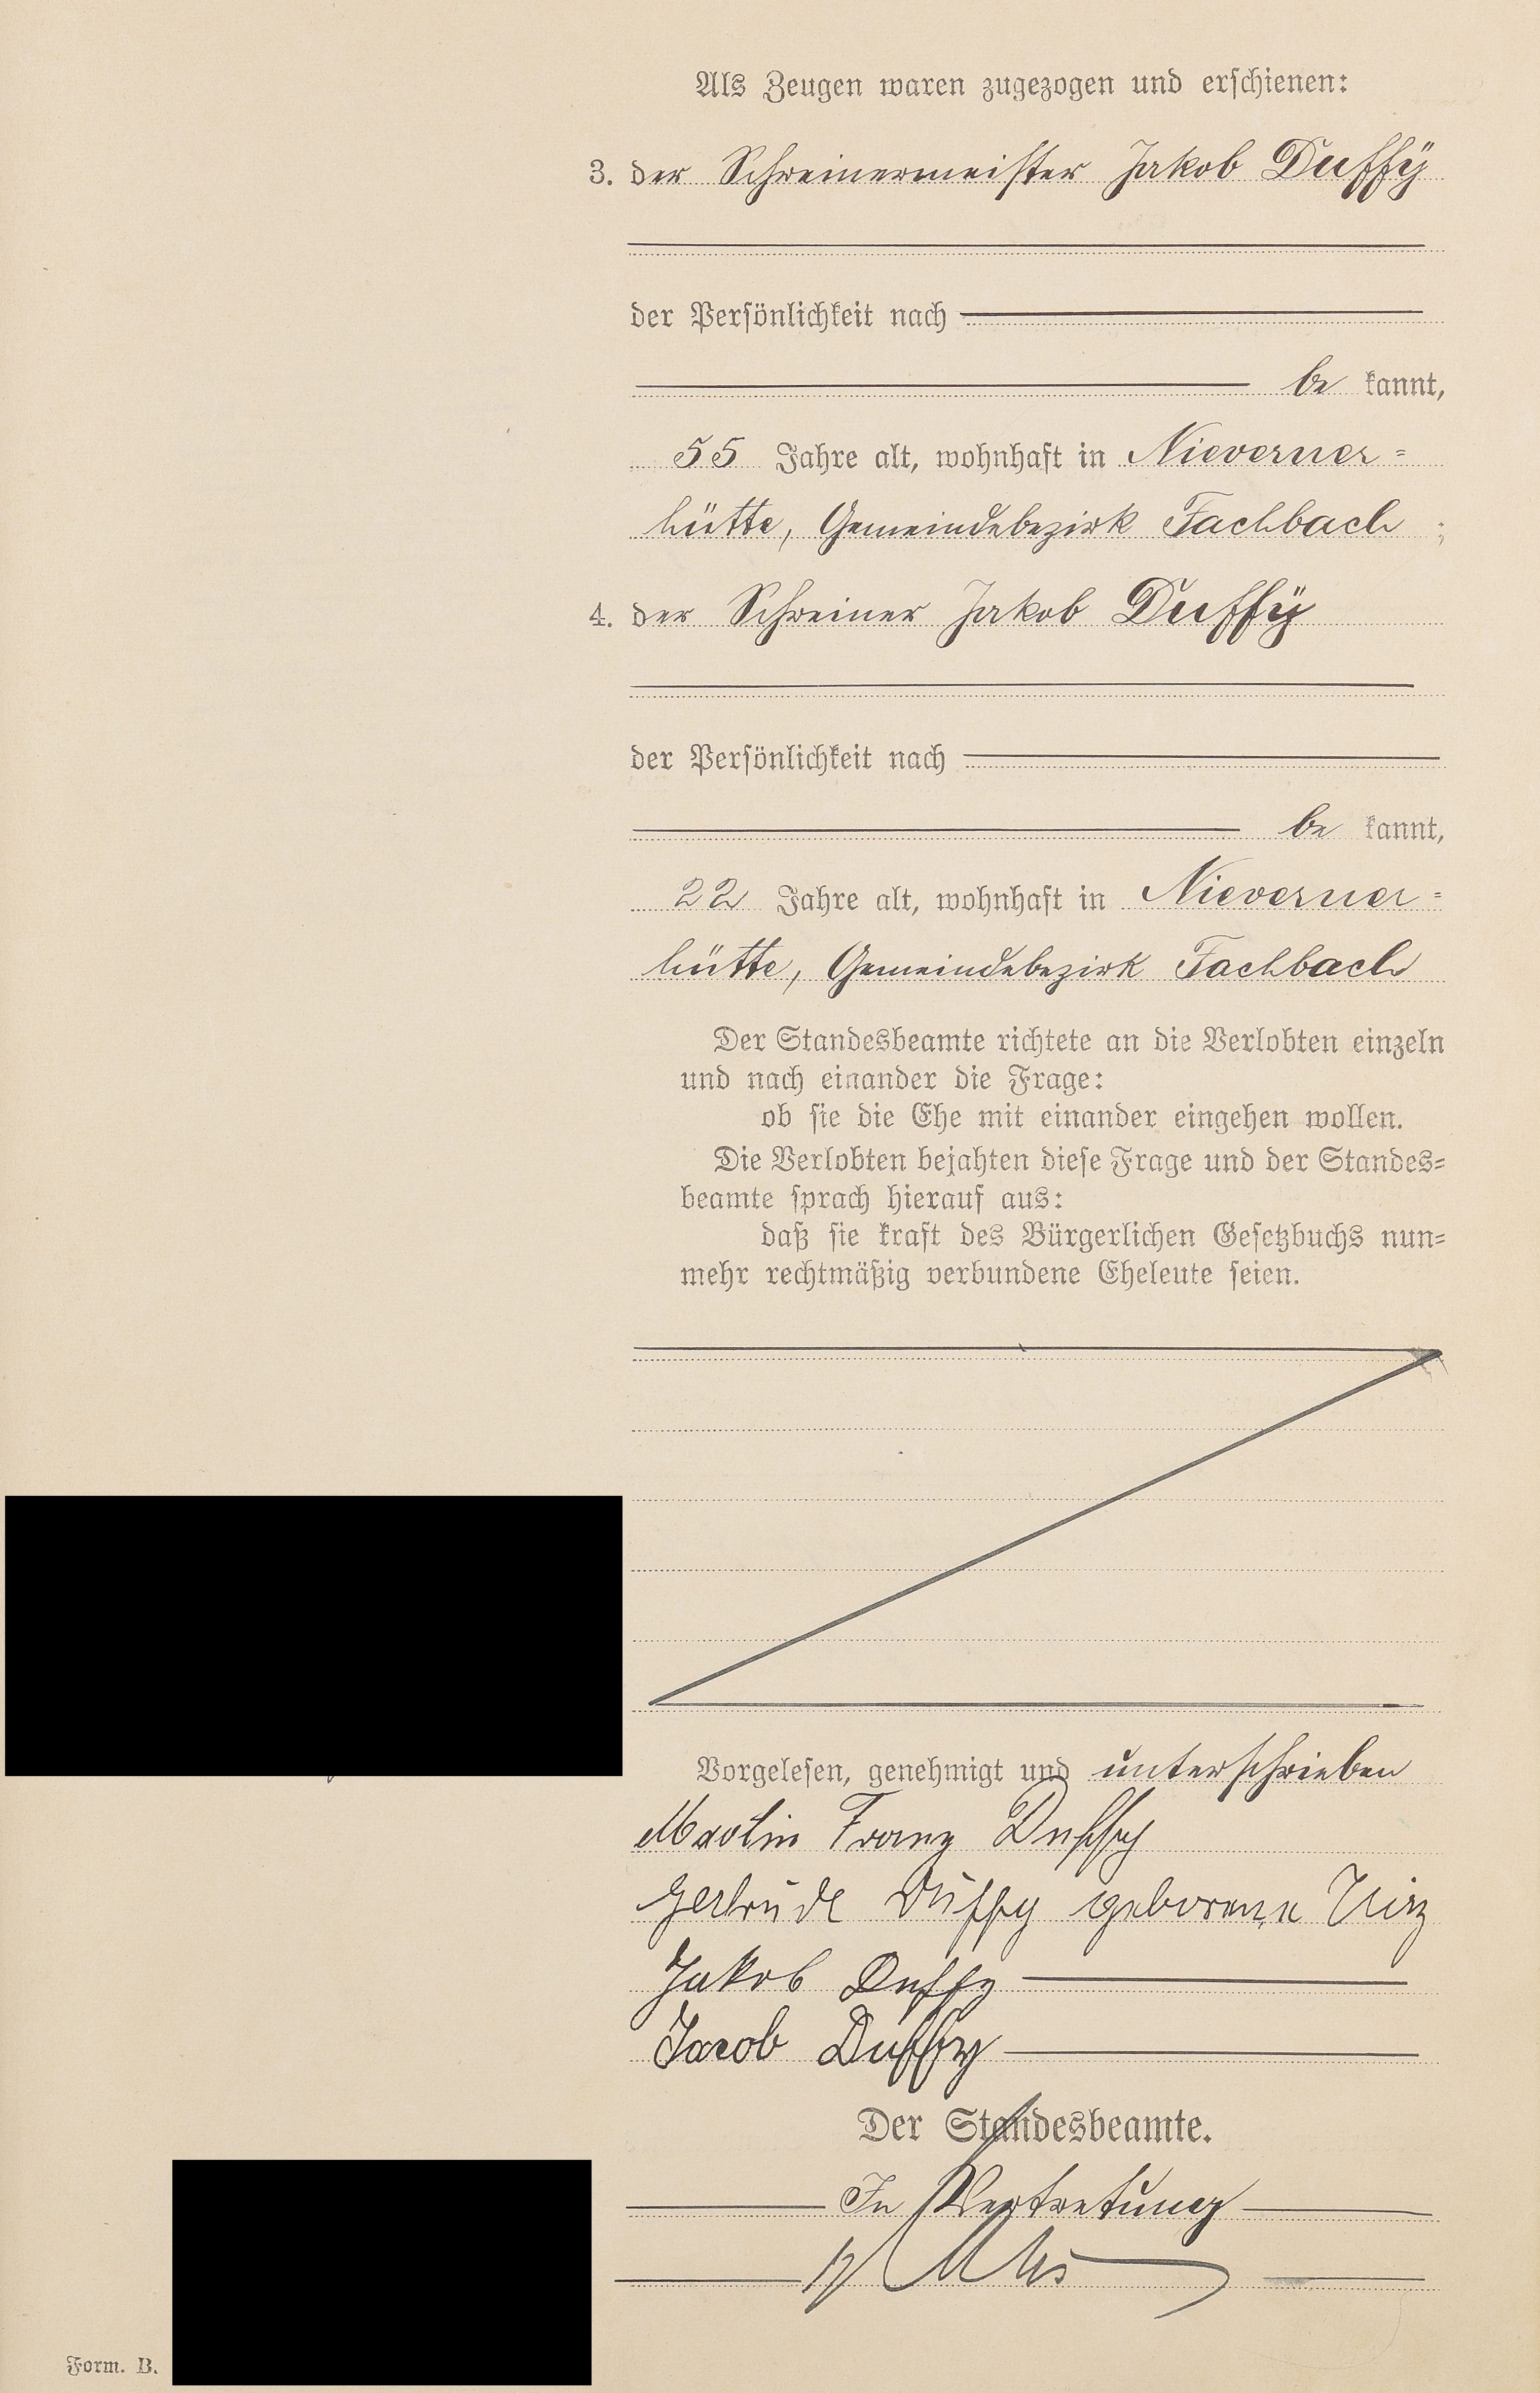 Als Zeugen waren zugezogen und erschienen:
3. der Schreinermeister Jakob Duffÿ
der Persönlichkeit nach
be kannt,
55 Jahre alt, wohnhaft in Nieverner=
hütte, Gemeindebezirk Fachbach ;
4. der Schreiner Jakob Duffÿ
der Persönlichkeit nach
be kannt,
22 Jahre alt, wohnhaft in Nieverner=
hütte, Gemeindebezirk Fachbach
Der Standesbeamte richtete an die Verlobten einzeln
und nach einander die Frage:
ob sie die Ehe mit einander eingehen wollen.
Die Verlobten bejahten diese Frage und der Standes=
beamte sprach hierauf aus:
daß sie kraft des Bürgerlichen Gesetzbuchs nun=
mehr rechtmäßig verbundene Eheleute seien.
Vorgelesen, genehmigt und unterschrieben
Martin Franz Duffy
Gertrude Duffy geborene
Jakob Duffy
Jacob Duffy
Der Standesbeamte.
In Vertretung
Form. B.